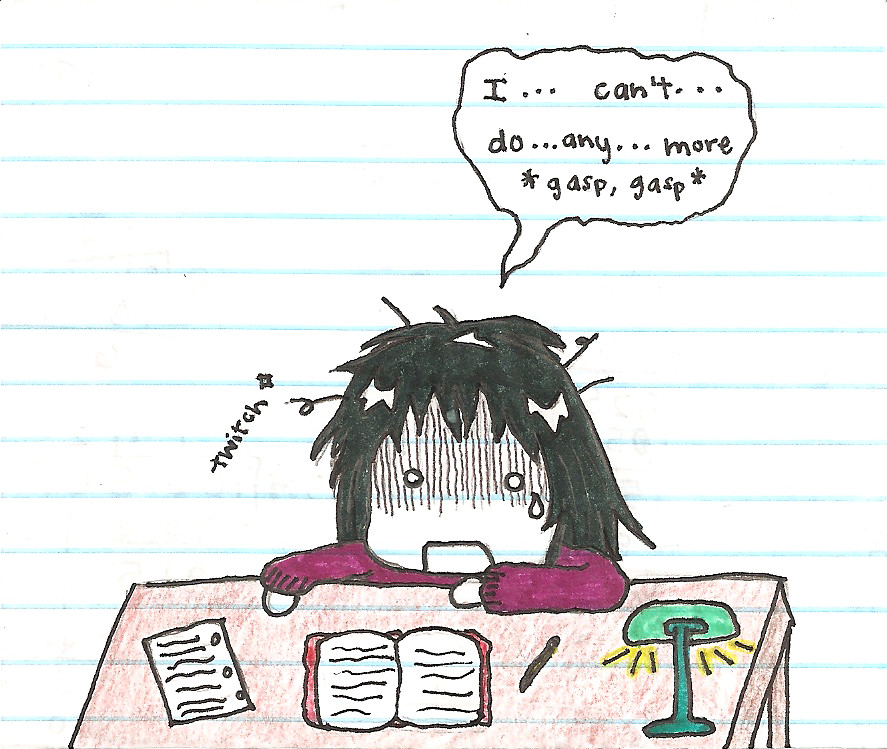 I... can't...
do...any... more
*gasp, gasp*
twitch*